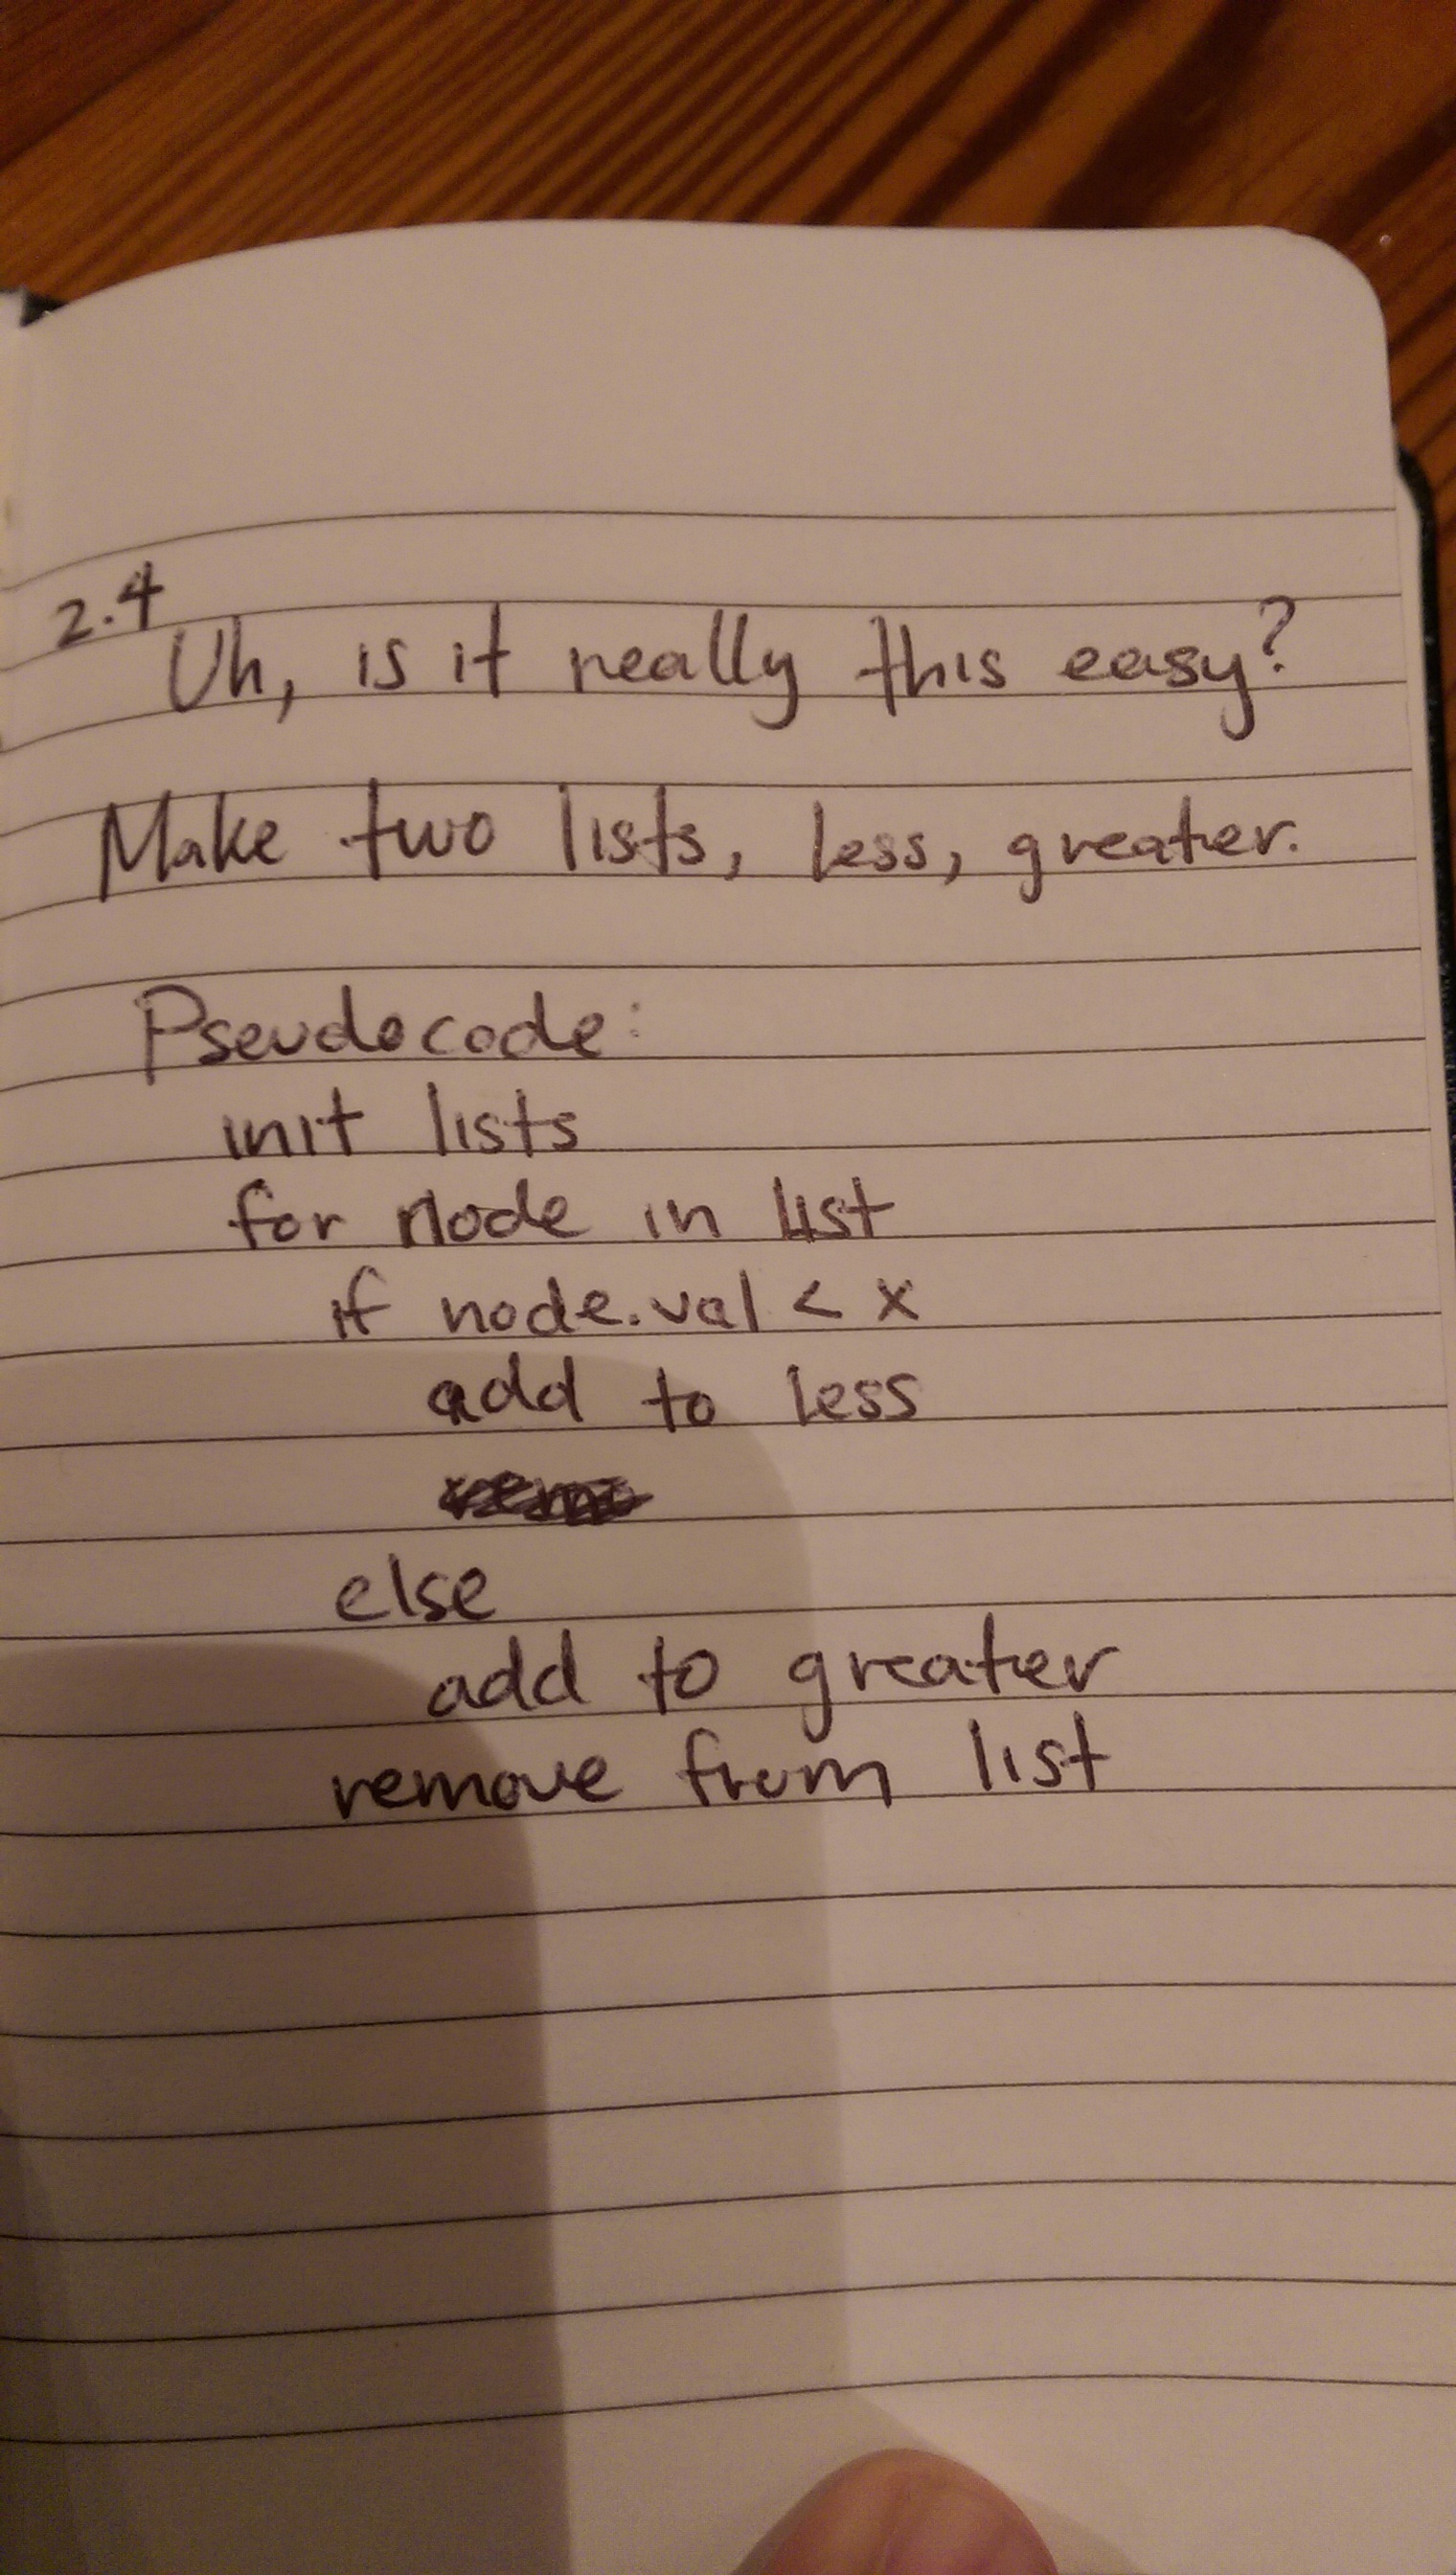 2.4
Uh, is it really this easy?
Make two lists, less, greater.
Pseudocode:
init lists
for node in list
if node.val < x
add to less
else
add to greater
remove from list